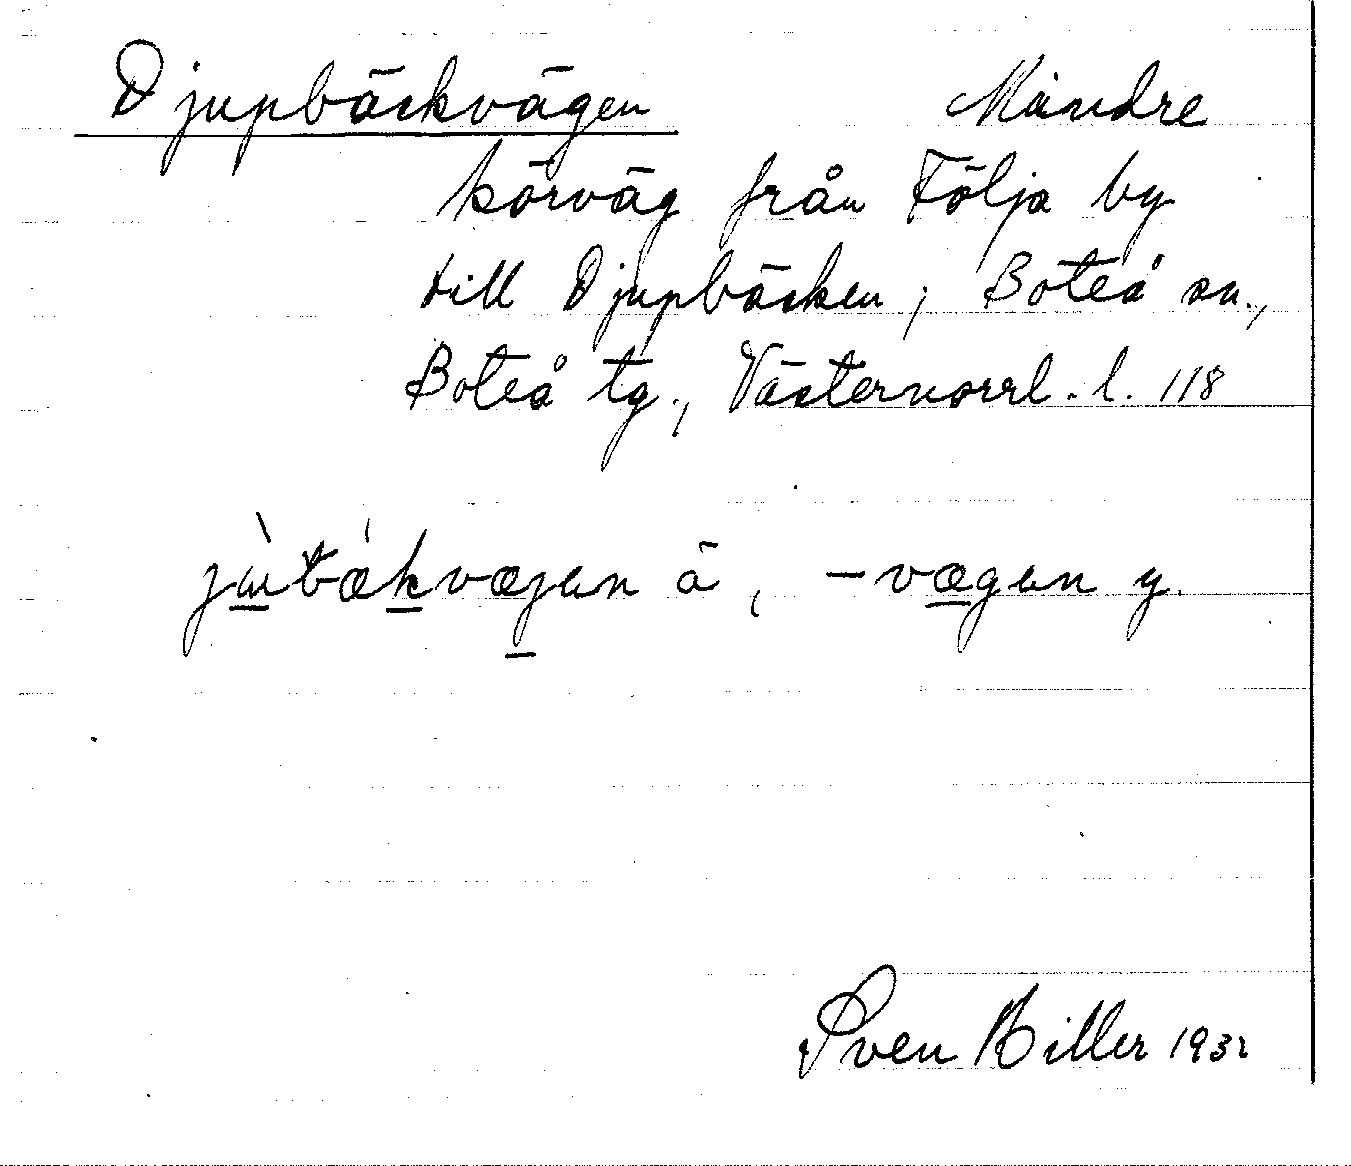 Djupbäckvägen Mändre
körväg från Följa by
till Djupbäcken; Boteå sn.,
Boteå tg., Västernorrl. l. 118
-vægen y.
Sven Hiller 1932